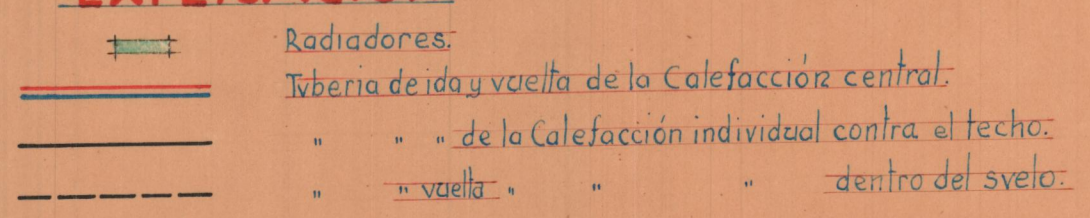 Radiadores.
Tuberia de ida y vuelta de la Calefacción central.
" " " de la Calefacción individual contra el techo.
" " vuelta " " " dentro del suelo.